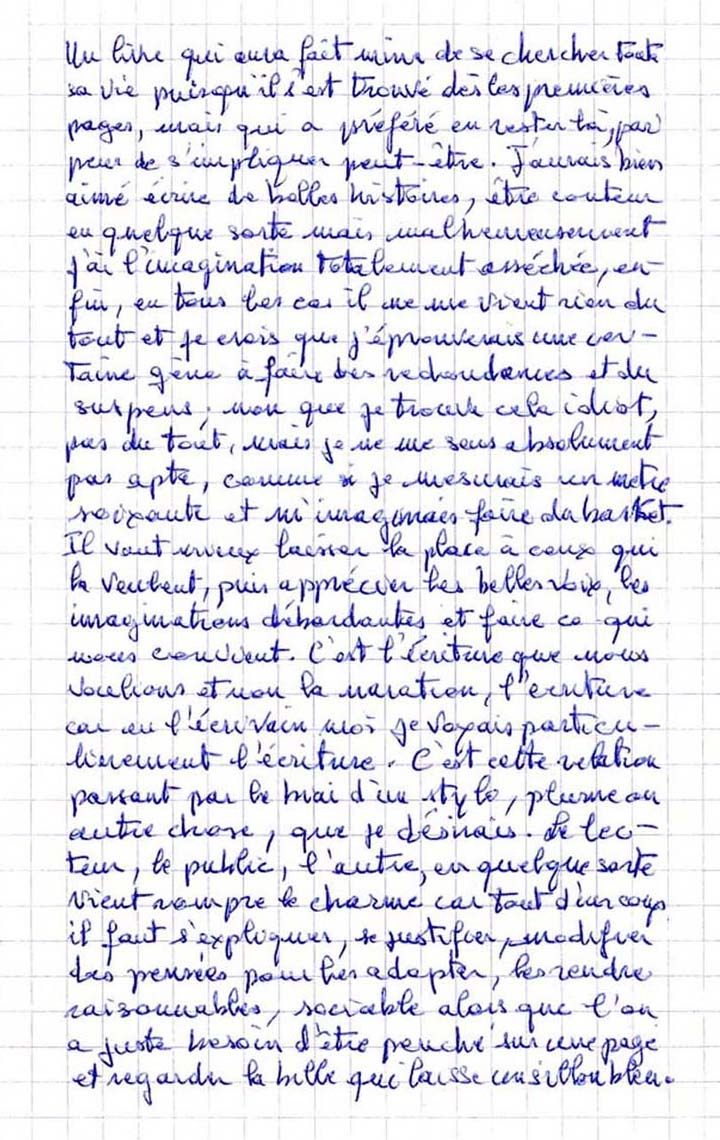 Un livre qui aura fait mine de se chercher toute
sa vie puisqu'il s'est trouvé dès les premières
pages, mais qui a préféré en rester là, par
peur de s'impliquer peut-être. J'aurais bien
aimé écrire de belles histoires, être conteur
en quelque sorte mais malheureusement
j'ai l'imagination totalement asséchée, en-
fin, en tous les cas il ne me vient rien du
tout et je crois que j'éprouverais une cer-
taine gêne à faire des redondances et du
suspens, non que je trouve cela idiot,
pas du tout, mais je ne me sens absolument
pas apte, comme si je mesurais un mètre
soixante et m'imaginais faire du basket.
Il vaut mieux laisser la place à ceux qui
la veulent, puis apprécier les belles voix, les
imaginations débordantes et faire ce qui
nous convient. C'est l'écriture que nous
voulions et non la naration, l'écriture
car en l'écrivain moi je voyais particu-
lièrement l'écriture. C'est cette relation
passant par le biai d'un stylo, plume ou
autre chose, que je désirais. Le lec-
teur, le public, l'autre, en quelque sorte
vient rompre le charme car tout d'un coup
il faut s'expliquer, se justifier, modifier
les pensées pour les adapter, les rendre
raisonnables, sociable alors que l'on
a juste besoin d'être penché sur une page
et regarder la bille qui laisse un sillon bleu.